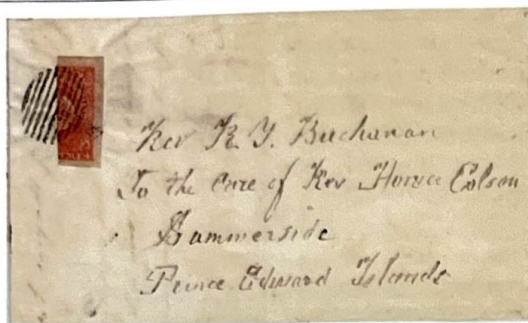 Rev R. Y. Buchanan
To the Care of Rev Horace Colson
Summerside
Prince Edward Islands